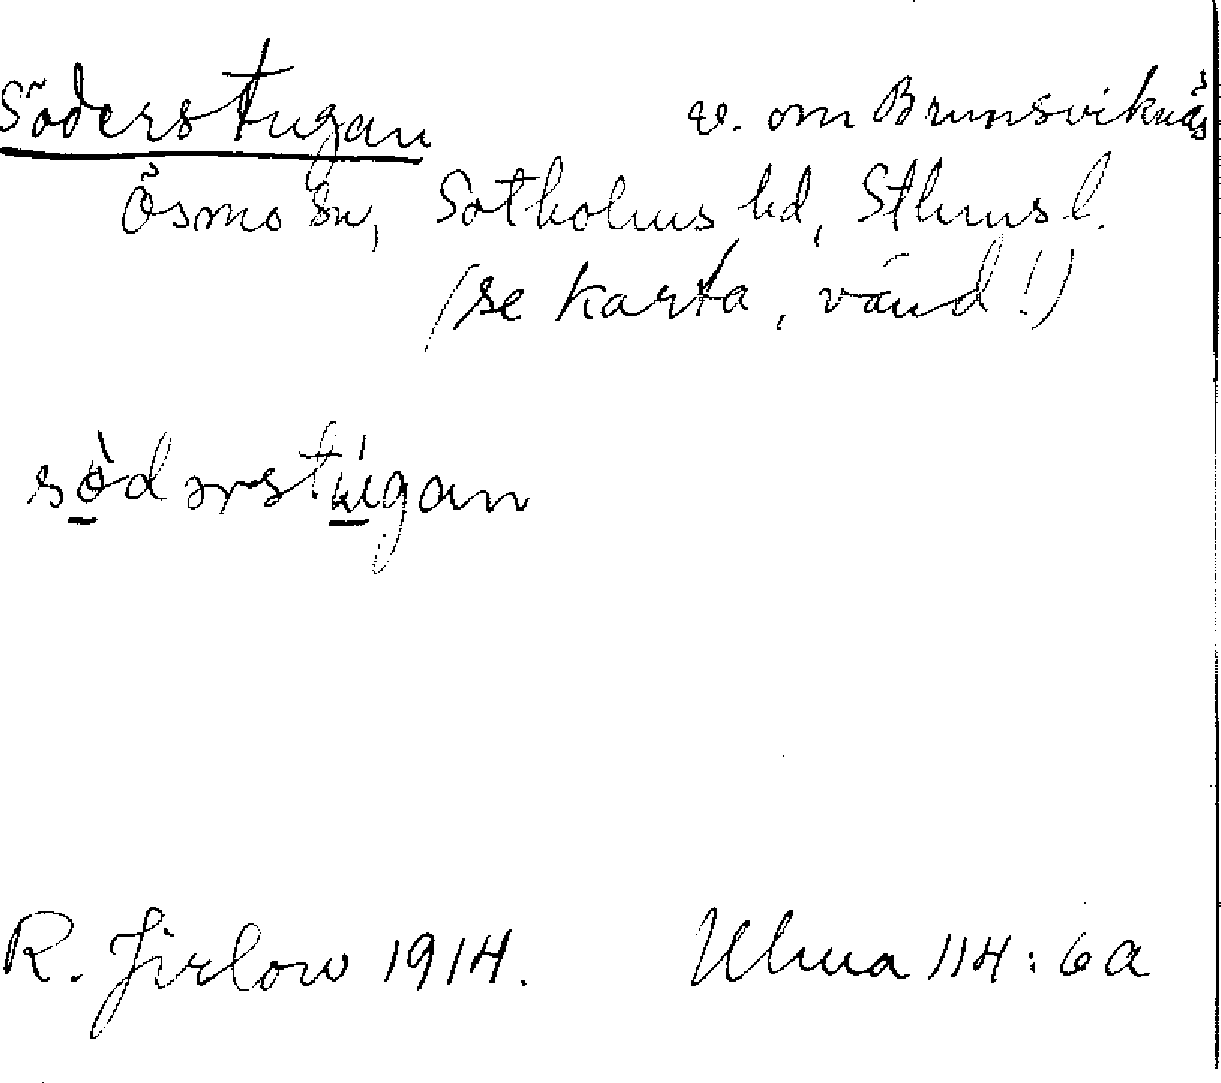 Söderstugan v. om Brunsviknäs
Ösmo sn, Sotholms hd, Sthms l.
(se karta, vänd!)
sö̀dərstúgan
R. Jirlow 1914. Ulma 114:6a